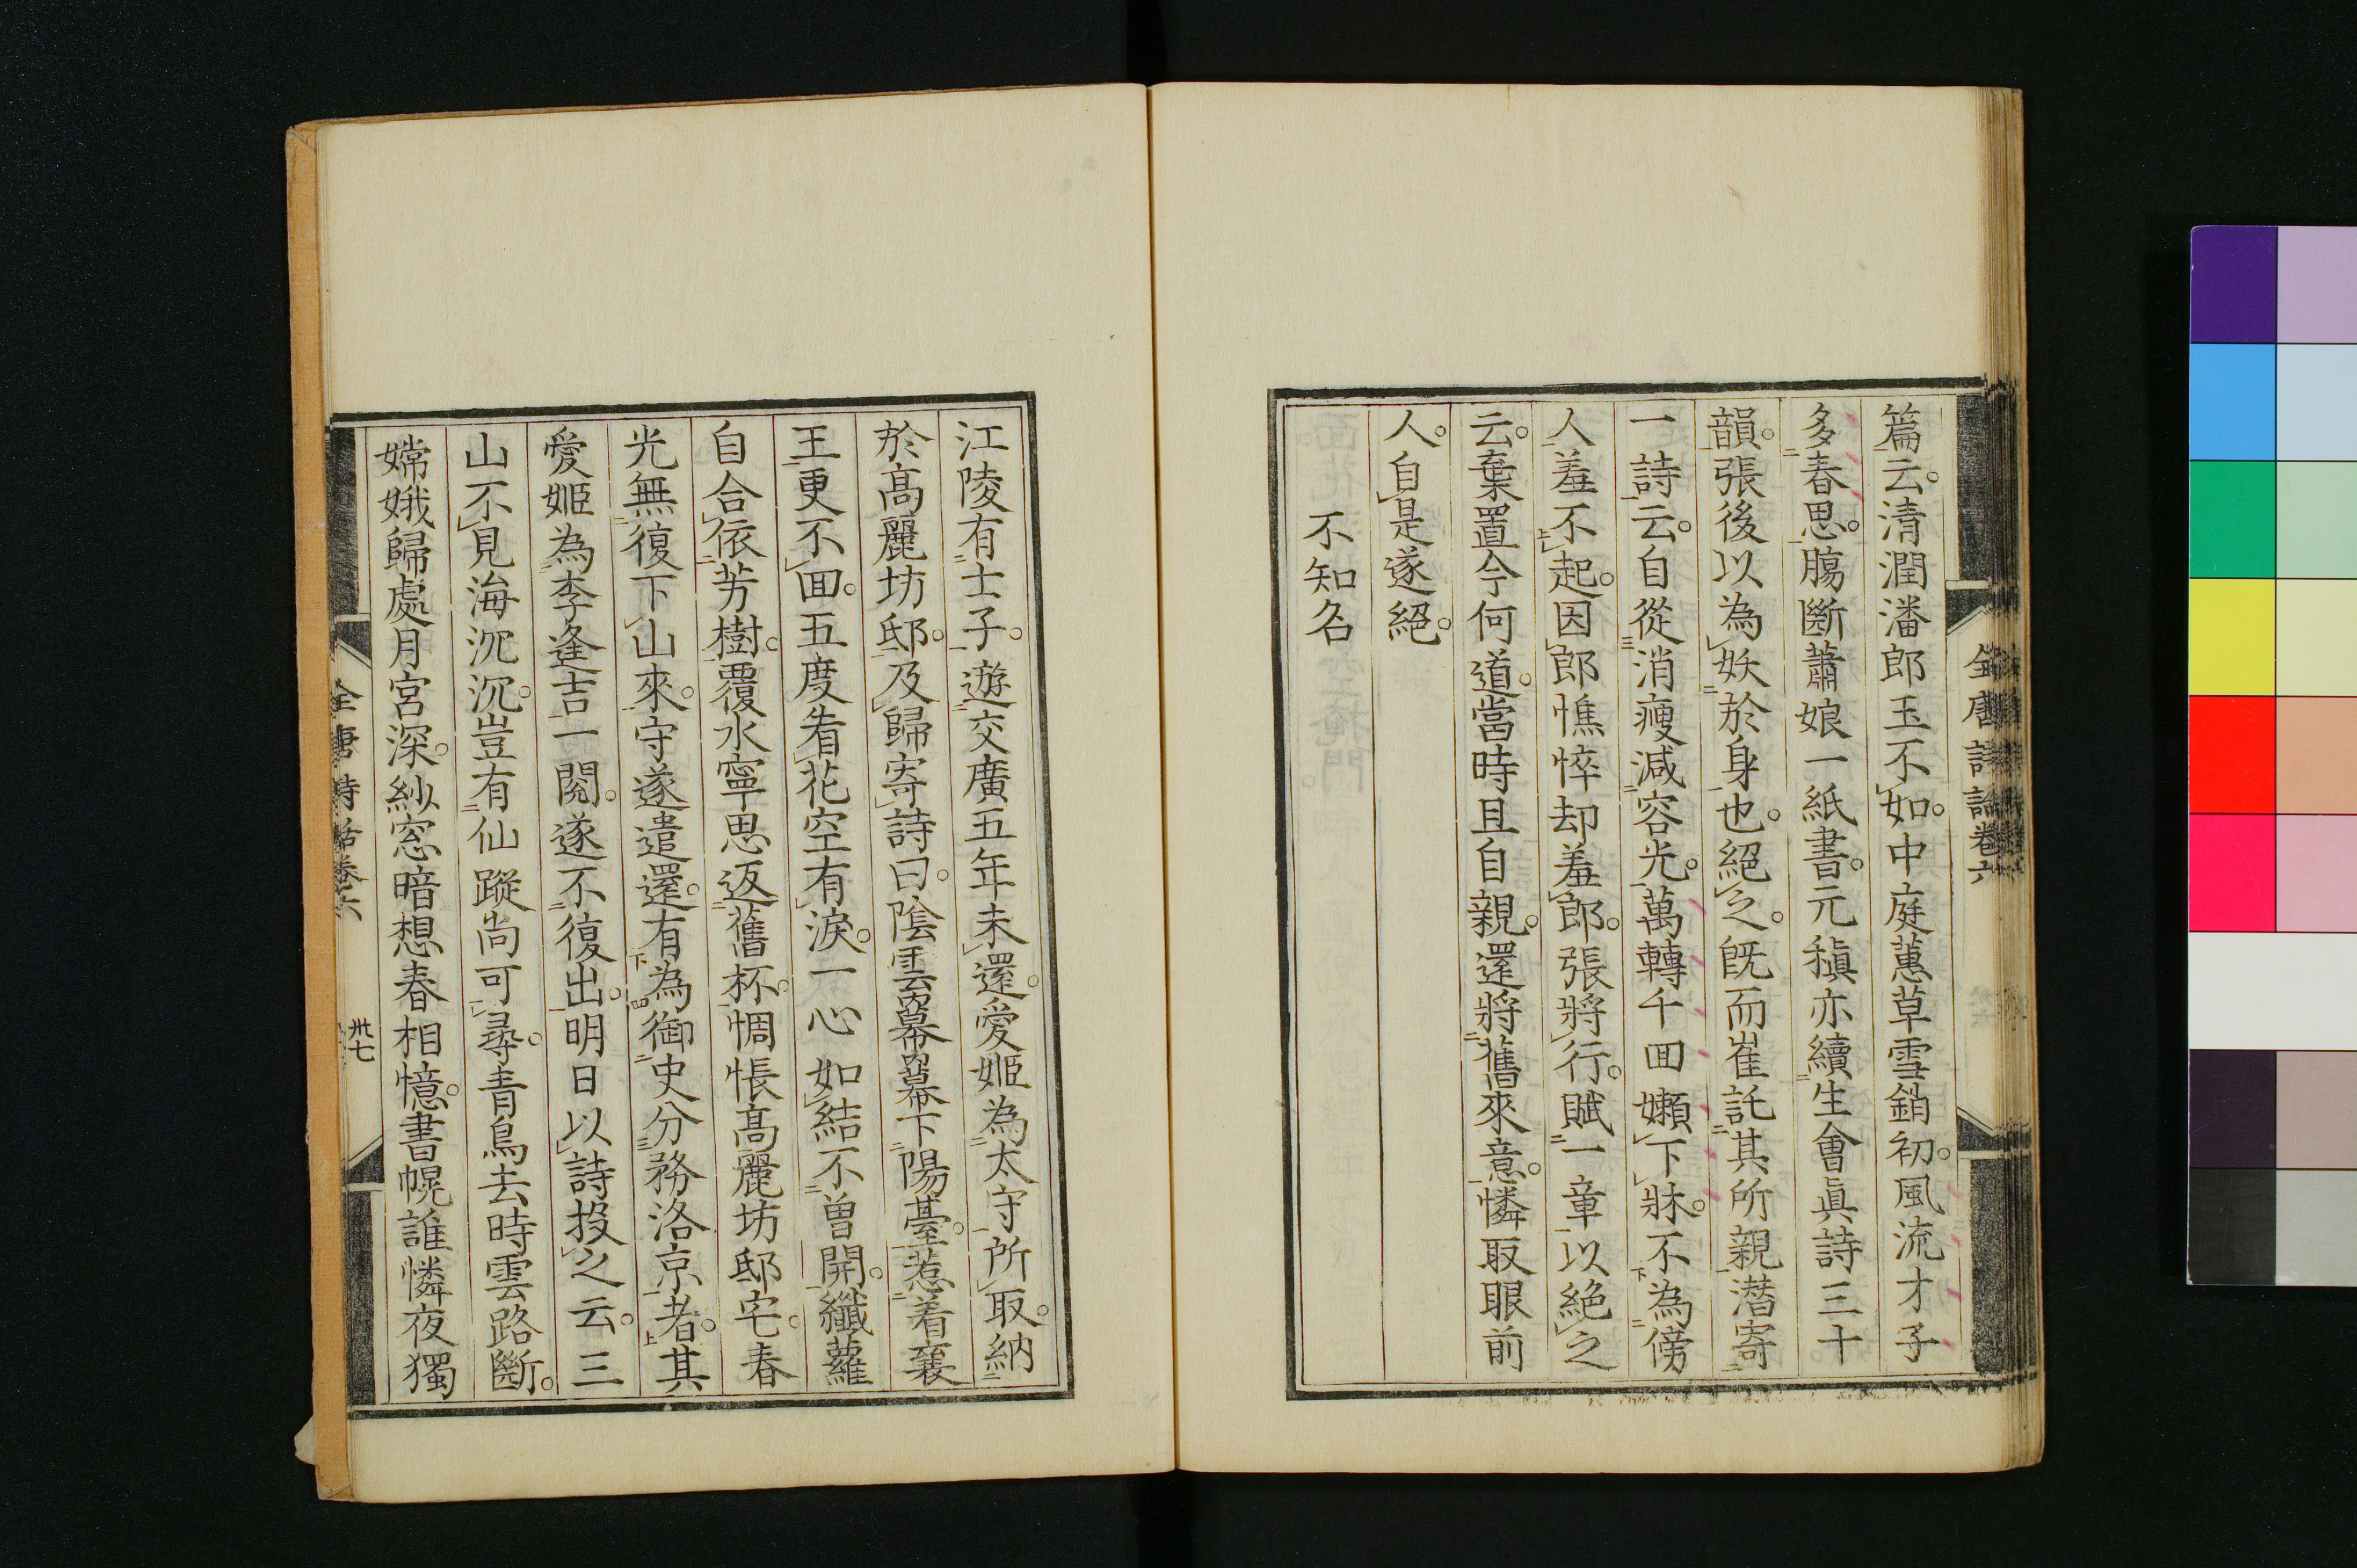 全唐詩話卷六
篇云。清潤潘郎玉不如。中庭蕙草雪銷初。風流才子
多春思。膓斷蕭娘一紙書。元稹亦續生會眞詩三十
韻。張後以為妖於身也。絕之。旣而崔託其所親潛寄
一詩云。自從消瘦減容光。萬轉千回嬾下牀。不為傍
人羞不起。因郎憔悴却羞郎。張將行。賦一章以絕之
云。棄置今何道。當時且自親。還將舊來意。憐取眼前
人。自是遂絕。
不知名
江陵有士子。遊交廣五年未還。愛姬為太守所取。納
於高麗坊邸。及歸寄詩曰。陰雲冪冪下陽臺。惹着襄
王更不回。五度看花空有淚。一心如結不曾開。纖蘿
自合依芳樹。覆水寧思返舊杯。惆悵高麗坊邸宅。春
光無復下山來。守遂遣還。有為御史分務洛京者。其
愛姬為李逢吉一閱。遂不復出。明日以詩投之云。三
山不見海沉沉。豈有仙蹤尚可尋。青鳥去時雲路斷。
嫦娥歸處月宮深。紗窓暗想春相憶。書幌誰憐夜獨
全唐詩話卷六
卅七